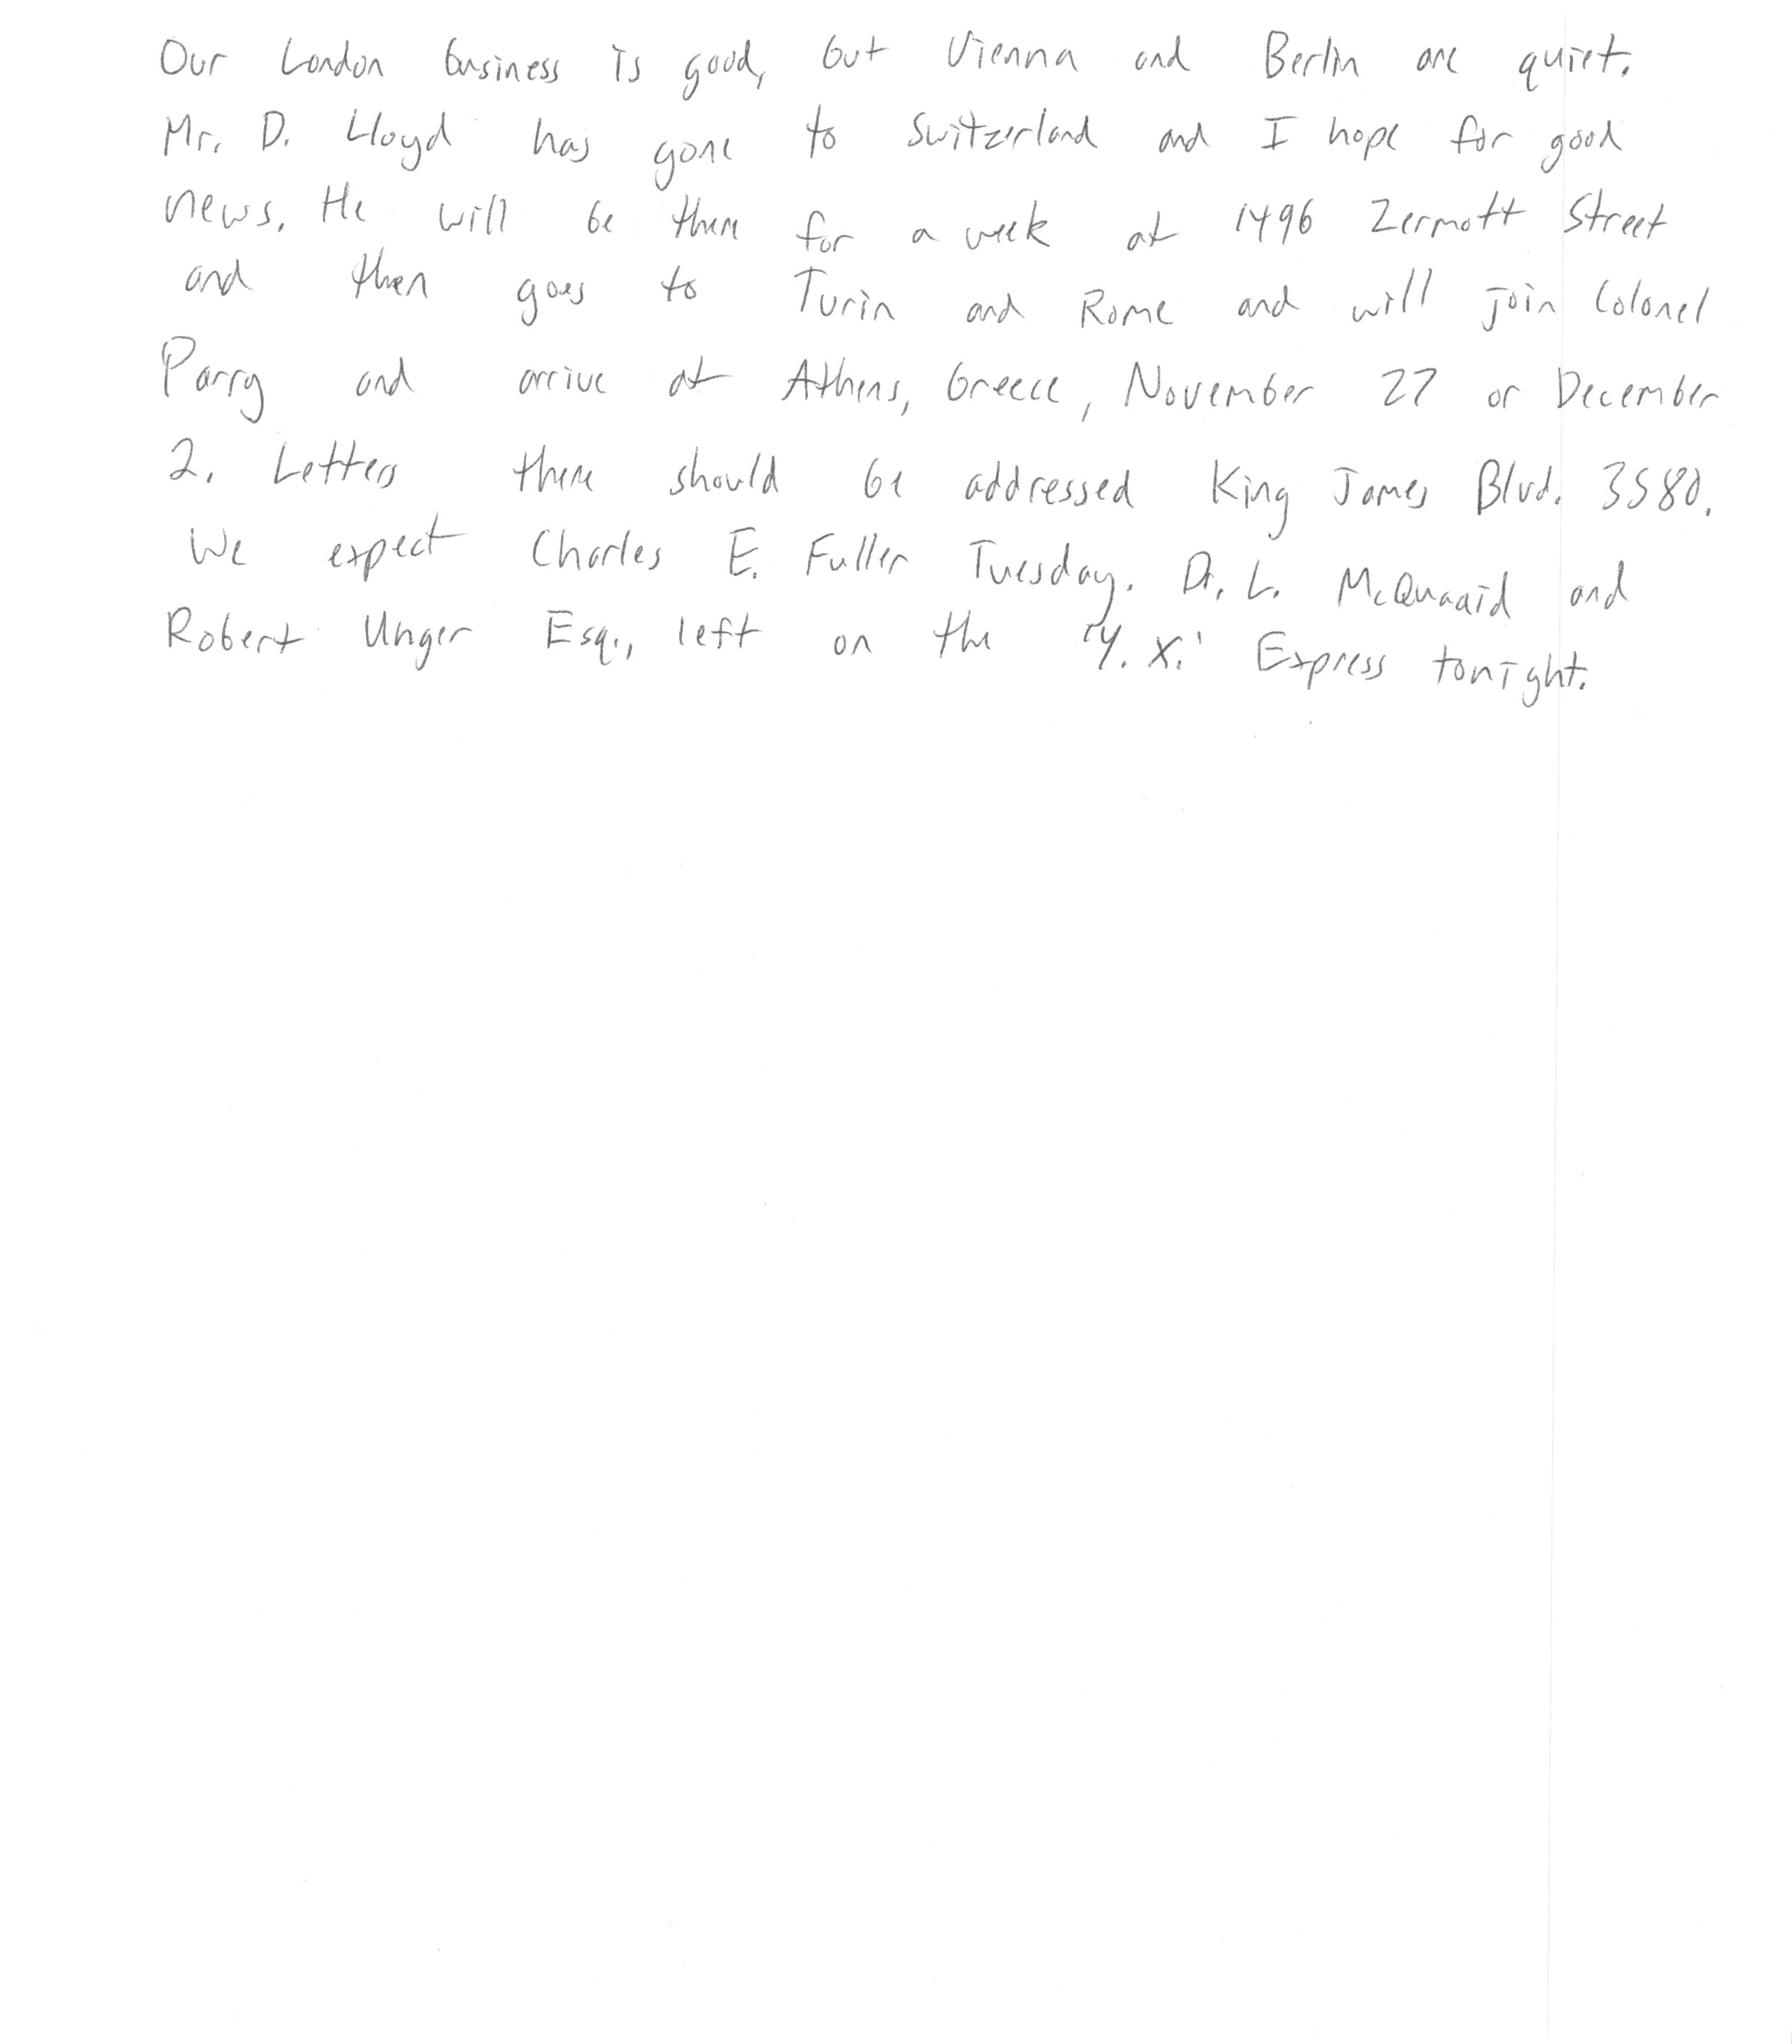 Our London business is good, but Vienna and Berlin are quiet.
Mr. D. Lloyd has gone to Switzerland and I hope for good
news. He will be there for a week at 1496 Zermott Street
and then goes to Turin and Rome and will join Colonel
Parry and arrive at Athens, Greece, November 27 or December
2. Letters there should be addressed King James Blvd. 3580.
We expect Charles E. Fuller Tuesday. Dr. L. McQuaaid and
Robert Unger Esq., left on the 'Y. X.' Express tonight.